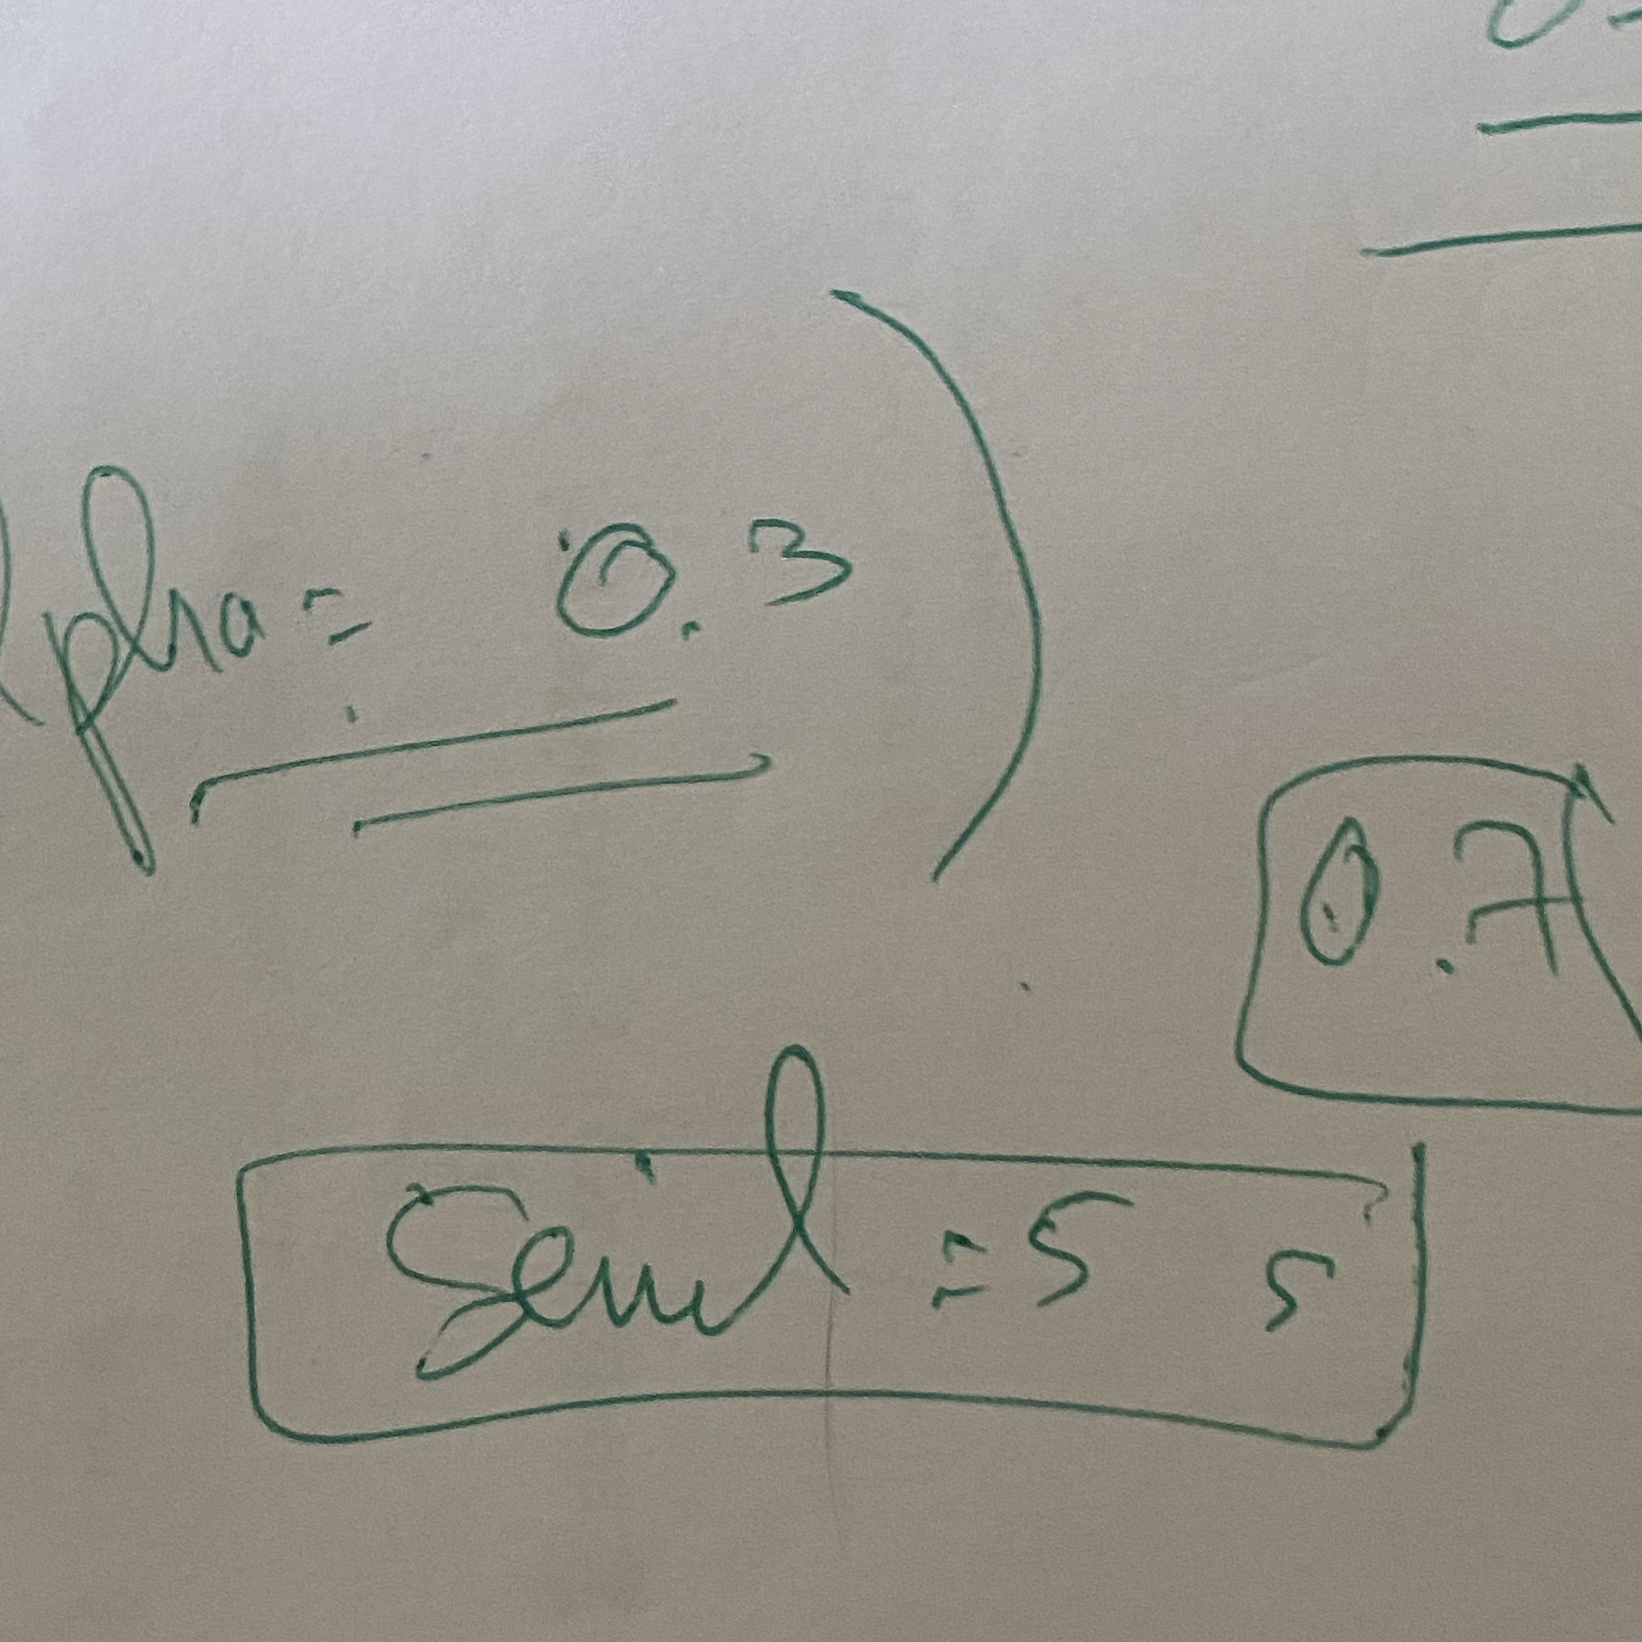 alpha = 0.3)
0.7
Seuil = 5 5